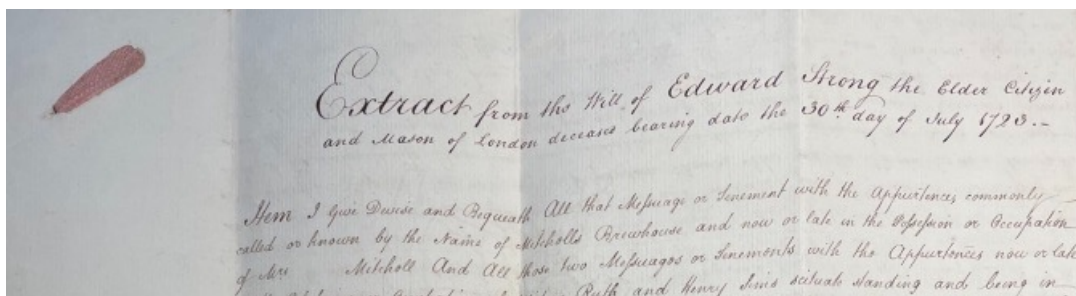 Extract from the Will of Edward Strong the Elder Citizen
and Mason of London deceased bearing date the 30th day of July 1723.-
Item I Give Devise and Bequeath All that Messuage or Tenement with the Appurtences commonly
called or known by the Name of Mitcholls Brewhouse and now or late in the Possession or Occupation
of Mrs Mitcholl And All those two Messuages or Tenements with the Appurtences now or late
Ruth and Henry Sims scituate standing and being in